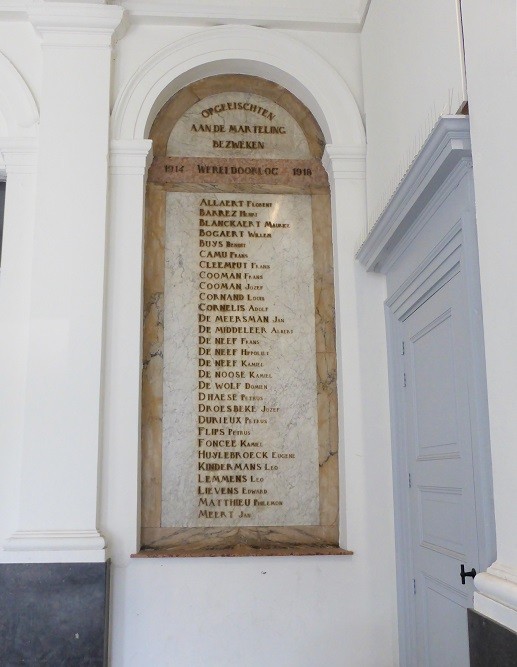 OPGEEISCHTEN
AAN DE MARTELING
BEZWEKEN
1914 WERELDOORLOG 1918
ALLAERT FLORENT
BARREZ HENRI
BLANCKAERT MAURITZ
BOGAERT WILLEM
BUYS BENONI
CAMU FRANS
CLEEMPUT FRANS
COOMAN FRANS
COOMAN JOZEF
CORNAND LOUIS
CORNELIS ADOLF
DE MEERSMAN JAN
DE MIDDELEER ALBERT
DE NEEF FRANS
DE NEEF HYPPOLIET
DE NEEF KAMIEL
DE NOOSE KAMIEL
DE WOLF DOMIEN
DHAESE PETRUS
DROESBEKE JOZEF
DURIEUX PETRUS
FLIPS PETRUS
FONCEE KAMIEL
HUYLEBROECK EUGENE
KINDERMANS LEO
LEMMENS LEO
LIEVENS EDWARD
MATTHIEU PHILEMON
MEERT JAN